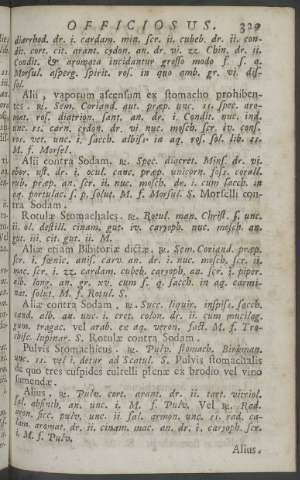 OFFICIOSUS. 329
diarrhod. dr. i. cardam. min. scr. ii. cubeb. dr. ii. con-
dit. cort. cit. arant. an. dr. vi. zz. Chin. dr. ii.
Condit. & aromata incidantur grosso modo f. s. q.
Morsul. asperg. spirit. ros. in quo amb. gr. vi. dis-
sol.
Alii, vaporum ascensum ex stomacho prohiben-
tes. ℞. Sem. Coriand. aut. præp. unc. ss. spec. aro-
mat. ros. diatrion. sant. an. dr. i. Condit. nuc. ind.
unc. ss. carn. an. dr. vi nuc. mosch. scr. iv. cons.
ros. vet. unc. i. sacch. albiss. in aq. ros. sol. lib. ss.
M. f. Morsel.
Alii contra Sodam. ℞. Spec. diacret. Minf. dr. vi.
ebor. ust. dr. i. ocul. canc. præp. unicorn. foss. corall.
rub. præp. an. scr. ii. nuc. mosch. dr. i. cum sacch. in
aq. portulac. s. p. solut. M. f. Morsul. S. Morselli con-
tra Sodam.
Rotulæ Stomachales. ℞. Rotul. man. Christ. s. unc.
ii. ol. destill. cinam. gut. iv. caryoph. nuc. mosch. an.
gut. iii. cit. gut. ii. M.
Aliæ etiam Bibitoriæ dictæ. ℞. Sem. Coriand. præp.
scr. i. fœnic. anis. carv. an. dr. i. nuc. mosch. scr. ii.
mac. scr. i. zz. cardam. cubeb. caryoph. an. scr. i. piper.
alb. long. an. gr. xv. cum s. q. sacch. in aq.
solut. M. f. Rotul. S.
Aliæ contra Sodam. ℞. Succ. liquir. inspiss. sacch.
cand. alb. an. unc. i. cret. colon. dr. ii. cum mucilag.
gum. tragac. vel arab. ex aq. veron. fact. M. f. Tro-
chisc. lupinar. S. Rotulæ contra Sodam.
Pulvis Stomachicus. ℞. Pulv. stomach. Birkman.
unc. ss. vel i. detur ad Scatul. S. Pulvis stomachalis
de quo tres cuspides cultelli plenæ ex brodio vel vino
sumendæ.
Alius. ℞. Pulv. cort. arant. dr. ii. tart. vitriol.
sal. absinth. an. unc. i. M. f. Pulv. Vel ℞. Rad.
aron. sicc. pulv. unc. ii. sal. armon. unc. ss. rad. ca-
lam. aromat. dr. ii. cinam. mac. an. dr. i. caryoph. scr.
i. M. f. Pulv.
Alius.